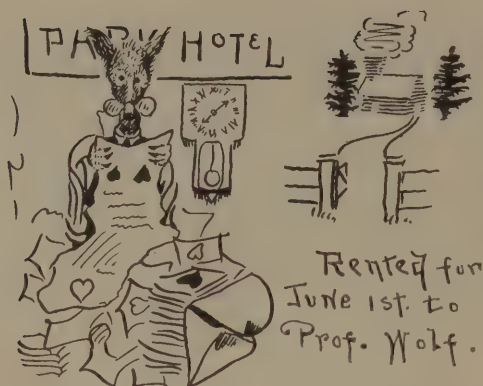 PARK HOTEL
Rented for
June 1st. to
Prof. Wolf.